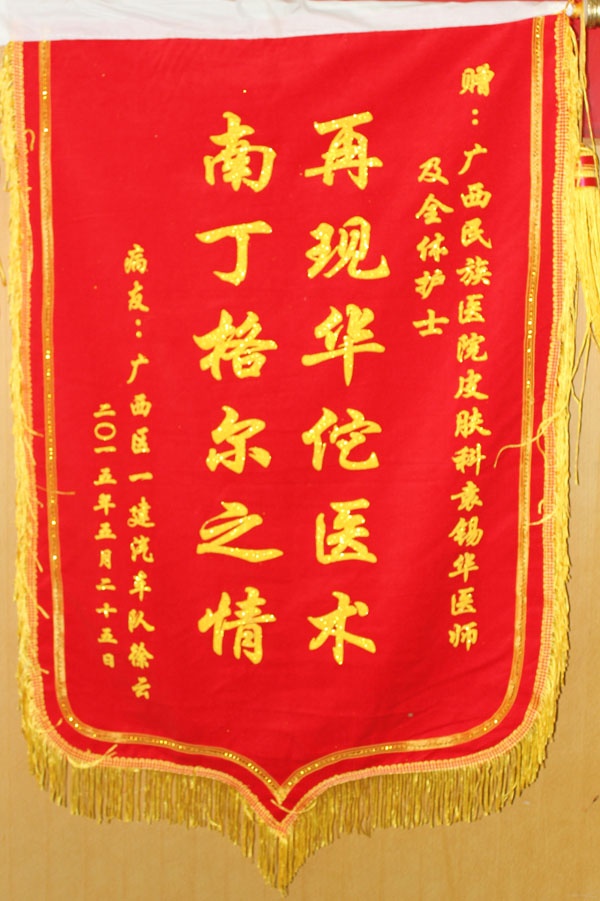 赠：广西民族医院皮肤科袁锡华医师
及全体护士
再现华佗医术
南丁格尔之情
病友：广西区一建汽车队徐云
二〇一五年五月二十五日